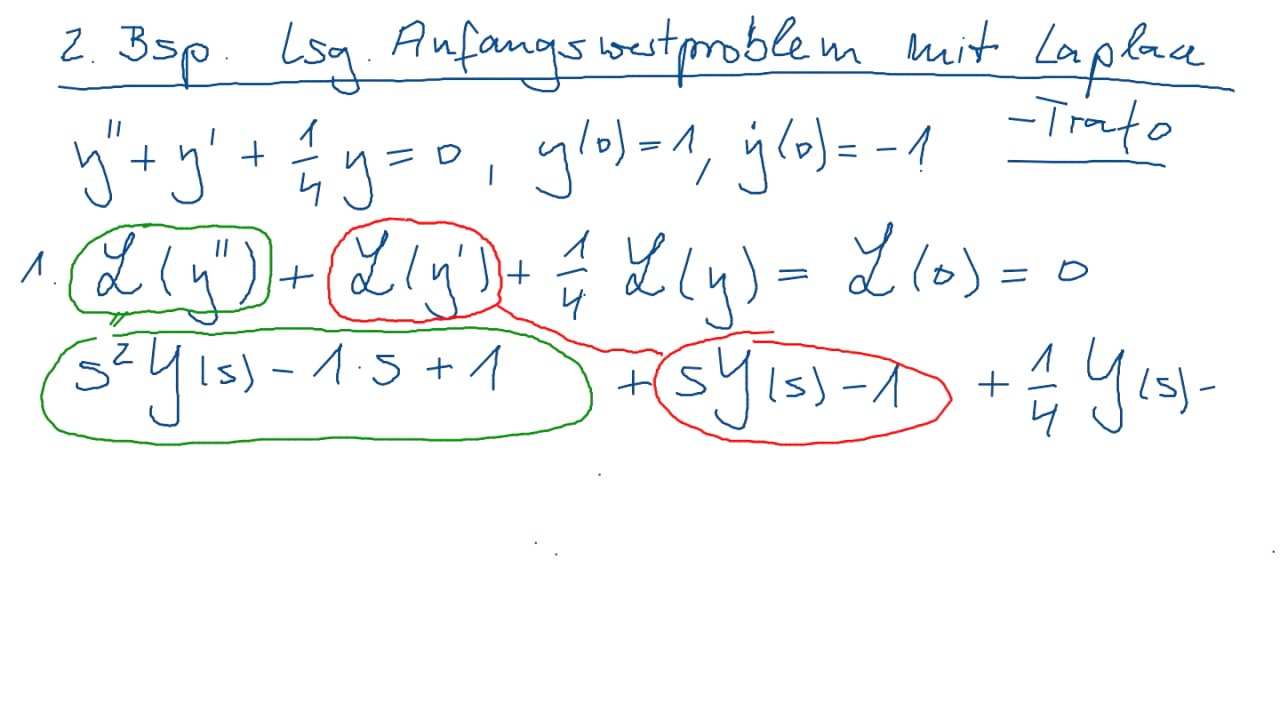 2. Bsp. Lsg. Anfangswertproblem mit Laplace
-Trafo
y'' + y' + 1/4 y = 0, y(0) = 1, ẏ(0) = -1
1. ℒ(y'') + ℒ(y') + 1/4 ℒ(y) = ℒ(0) = 0
s² Y(s) - 1·s + 1 + sY(s) - 1 + 1/4 Y(s) -